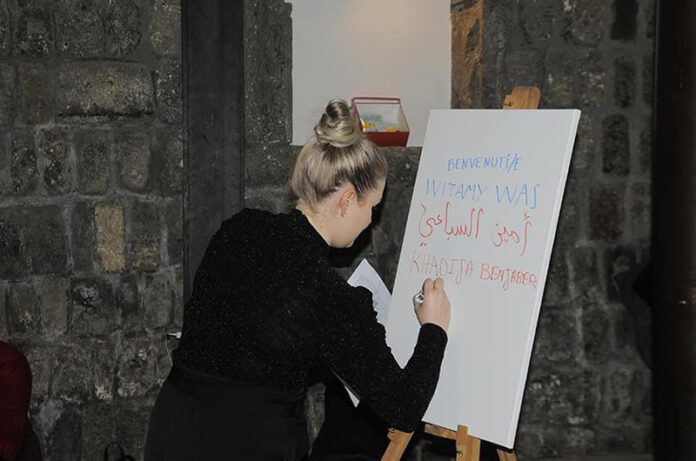 BENVENUTI/E
WITAMY WAS
أمين السباعي
KHADIJA BENJABER